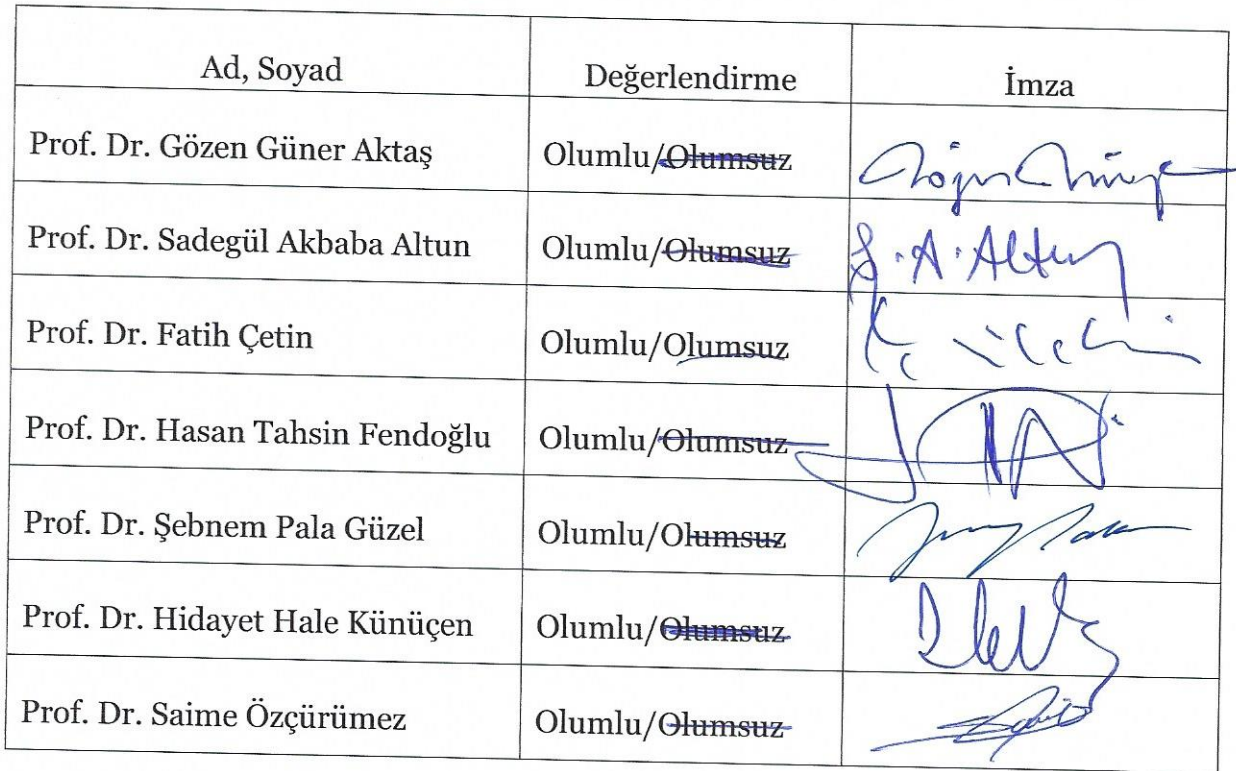 Ad, Soyad Değerlendirme İmza
Prof. Dr. Gözen Güner Aktaş Olumlu/Olumsuz
Prof. Dr. Sadegül Akbaba Altun Olumlu/Olumsuz S.A.Altun
Prof. Dr. Fatih Çetin Olumlu/Olumsuz
Prof. Dr. Hasan Tahsin Fendoğlu Olumlu/Olumsuz
Prof. Dr. Şebnem Pala Güzel Olumlu/Olumsuz
Prof. Dr. Hidayet Hale Künüçen Olumlu/Olumsuz
Prof. Dr. Saime Özçürümez Olumlu/Olumsuz